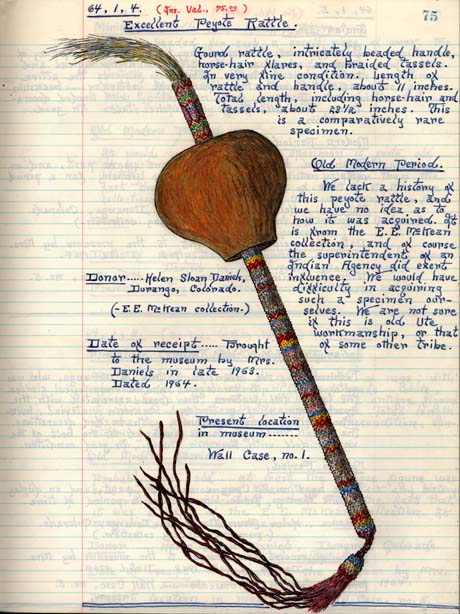 64,1,4. (Ins. Val., 75.00)
75
Excellent Peyote Rattle.
Gourd rattle, intricately beaded handle,
horse-hair flares, and braided tassels.
In very fine condition. Length of
rattle and handle, about 11 inches.
Total length, including horse-hair and
tassels, about 23 1/2 inches. This
is a comparatively rare
specimen.
Old Modern Period.
We lack a history of
this peyote rattle, and
we have no idea as to
how it was acquired. It
is from the E.E. McKean
collection, and of course
the superintendent of an
Indian Agency did exert
influence. We would have
difficulty in acquiring
such a specimen our-
selves. We are not sure
if this is old Ute
workmanship, or that
of some other tribe.
Donor.....Helen Sloan Daniels,
Durango, Colorado.
(-E.E. McKean collection.)
Date of receipt.....Brought
to the museum by Mrs.
Daniels in late 1963.
Dated 1964.
Present location
in museum-------
Wall Case, no. 1.